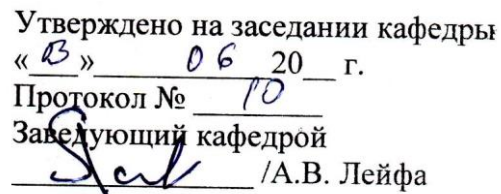 Утверждено на заседании кафедры
«__»  06  20__ г.
Протокол № 10
Заведующий кафедрой
/А.В. Лейфа